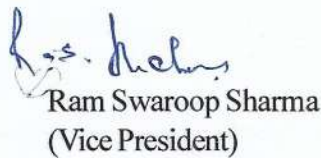 Ram Swaroop Sharma
(Vice President)